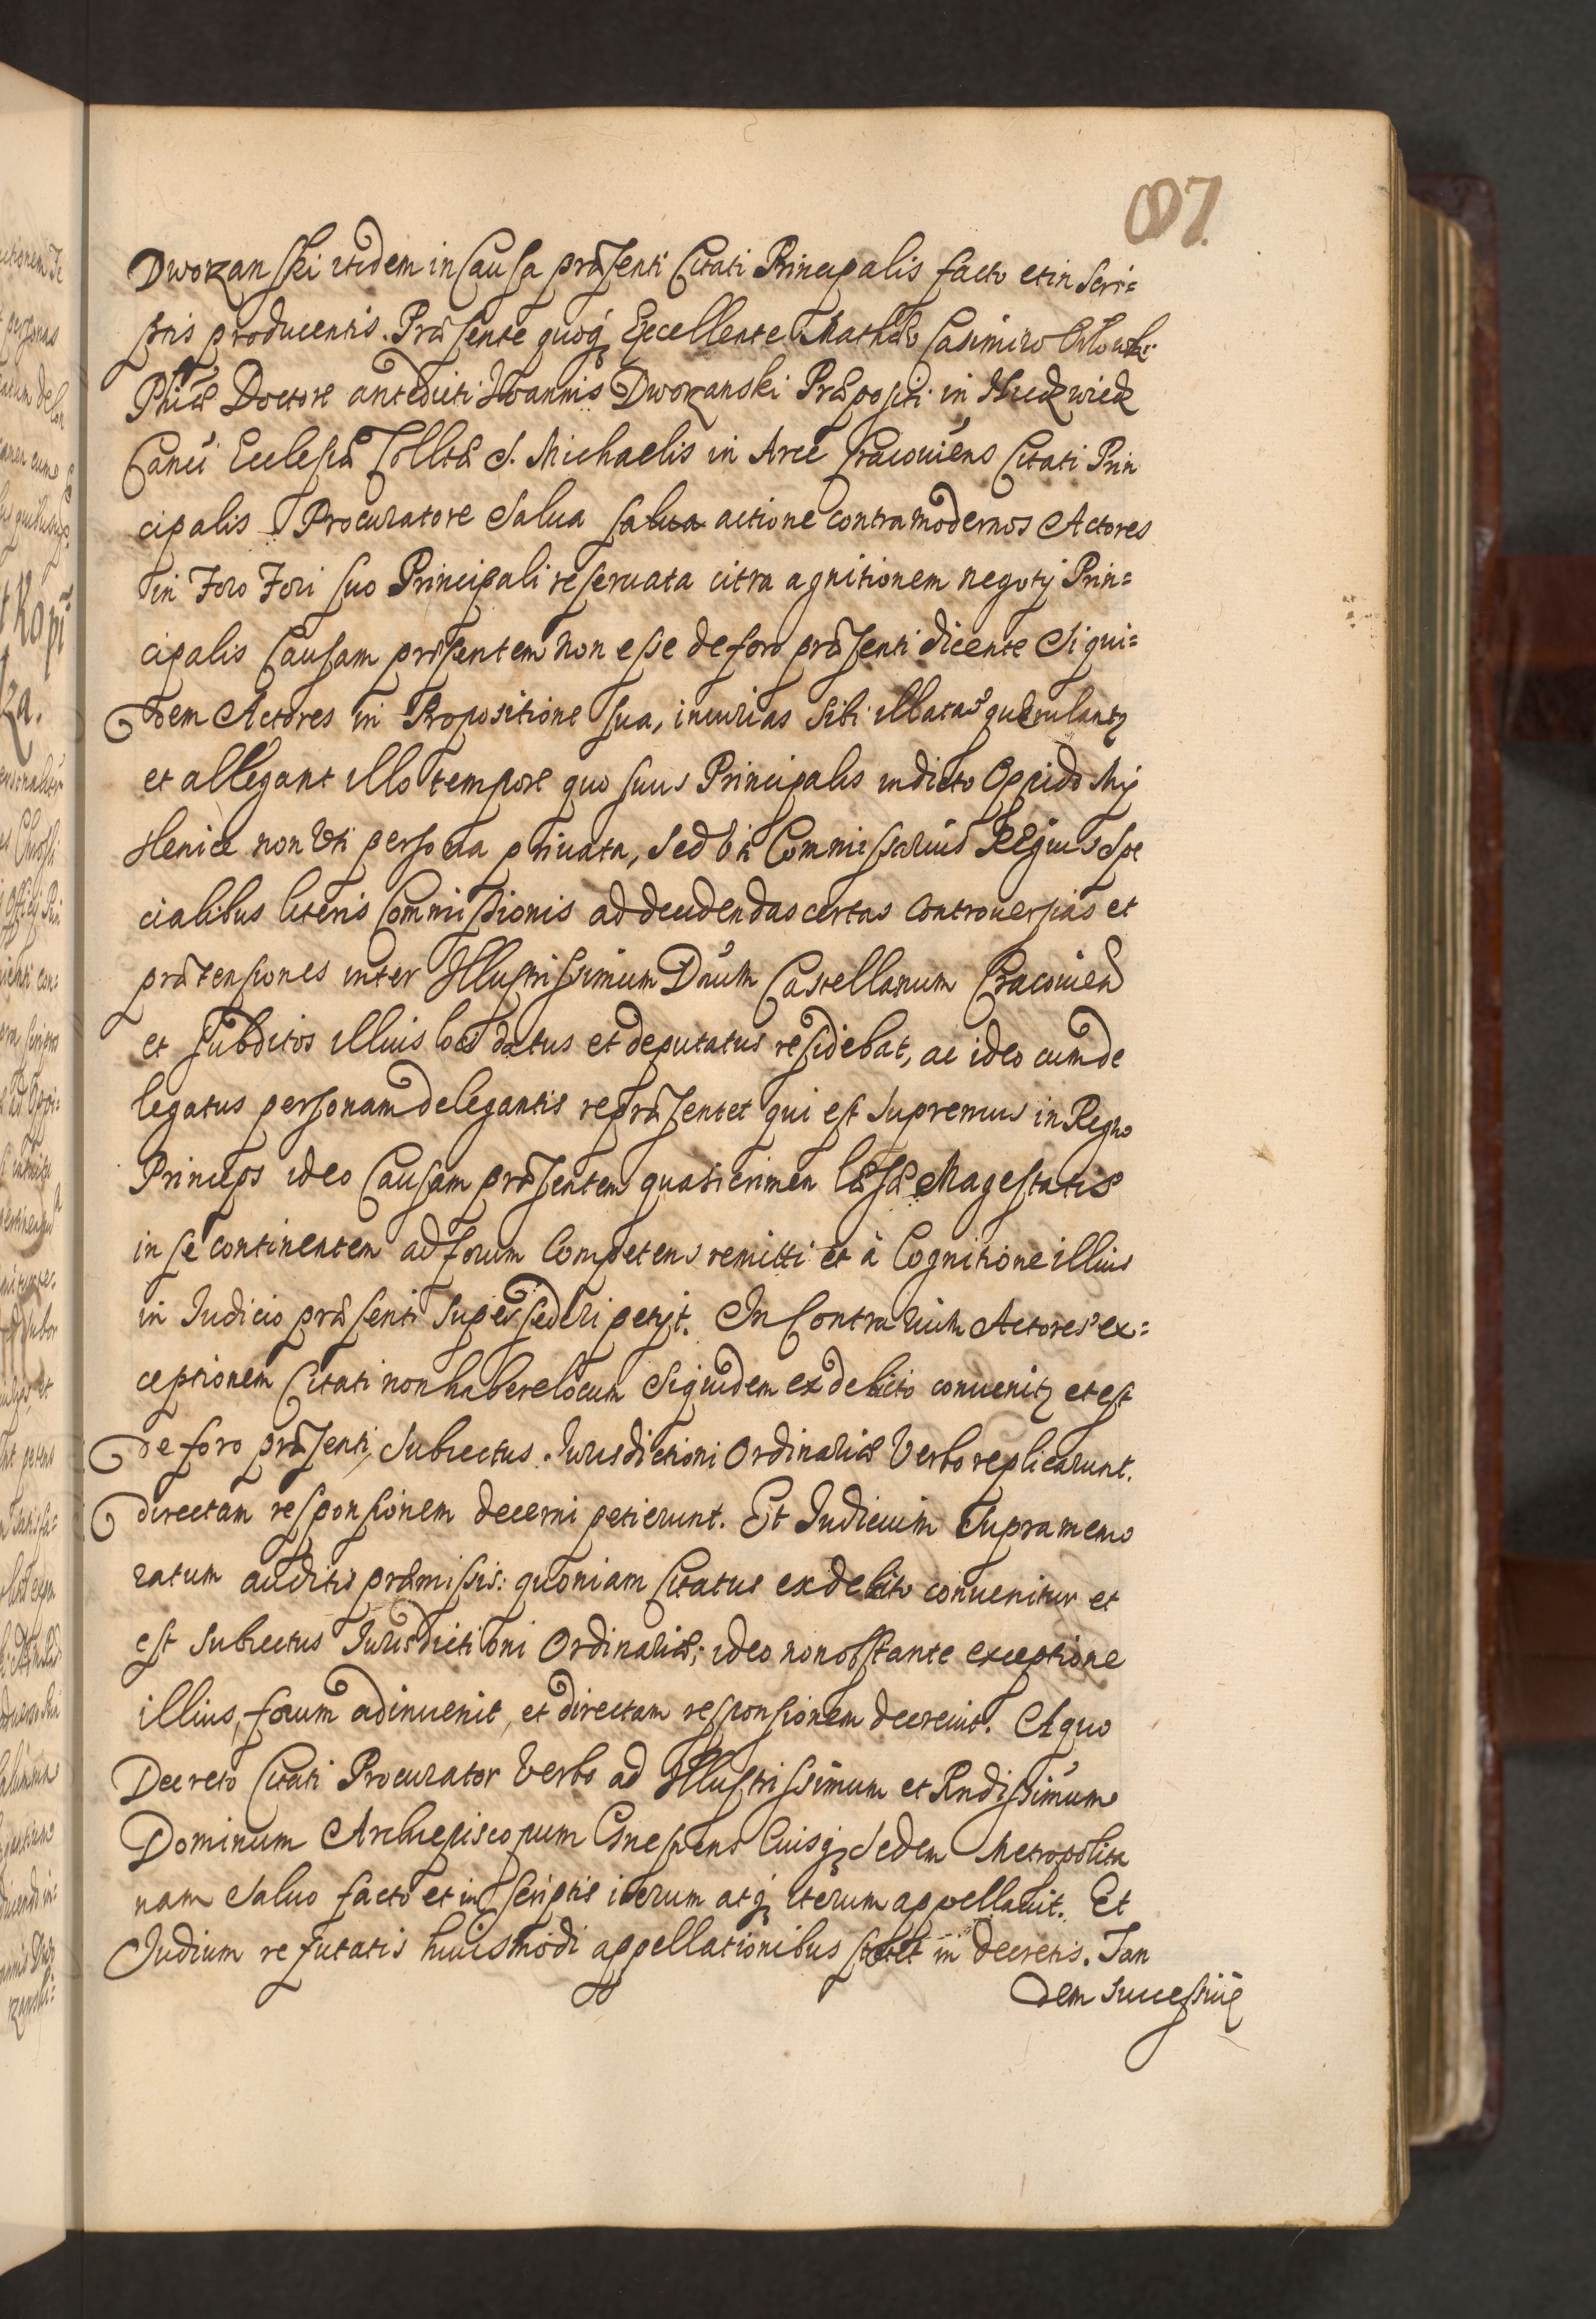 87.
Dworzanski itidem in Causa præsenti Citati Principalis facto et in Scri=
ptis producentis. Præsente quoq; Excellente Mathæo Casimiro
Phiæ Doctore antedicti Ioannis Dworzanski Præpositi in Niedzwiedz
Canci Ecclesiæ Colltæ S. Michaelis in Arce Cracouiens Citati Prin
cipalis Procuratore Salua salua actione contra modernos Actores
in Foro Fori suo Principali reseruata citra agnitionem negotij Prin=
cipalis Causam præsentem non esse de foro præsenti dicente Siqui=
dem Actores in Propositione sua, iniurias sibi illatas quærulantz
et allegant illo tempore quo suus Principalis in dicto Oppido Mÿ
slenice non Uti persona priuata, sed Uti Commissarius Regius Spe
cialibus literis Commissionis ad decidendas certas controuersias et
prætensiones inter Illustrissimum Dnum Castellanum Cracouien
et Subditos illius loci datus et deputatus residebat, ac ideo cum de
legatus personam delegantis repræsentet qui est Supremus in Regno
Princeps ideo Causam præsentem quasi crimen læsæ Magestatis
in se continentem ad forum Competens remitti et à Cognitione illius
in Iudicio præsenti Supersederi petijt. In Contrarium Actores ex=
ceptionem Citati non habere locum Siquidem ex delicto conuenitz et est
de foro præsenti, Subiectus Iurisdictioni Ordinariæ Verbo replicarunt.
directam responsionem decerni petierunt. Et Iudicium Supramemo
ratum auditis præmissis: quoniam Citatus ex delicto conuenitur et
est Subiectus Iurisdictioni Ordinariæ; ideo non obstante exceptione
illius, forum adinuenit, et directam responsionem decreuit. A quo
Decreto Citati Procurator Verbo ad Illustrissimum et Rndissimum
Dominum Archiepiscopum Gnesnens Cuisq; Sedem Metropolita
nam Saluo facto et in Scriptis iterum atq; iterum appellauit. Et
Iudium refutatis huismodi appellationibus stetit in decretis. Tan
dem successiue